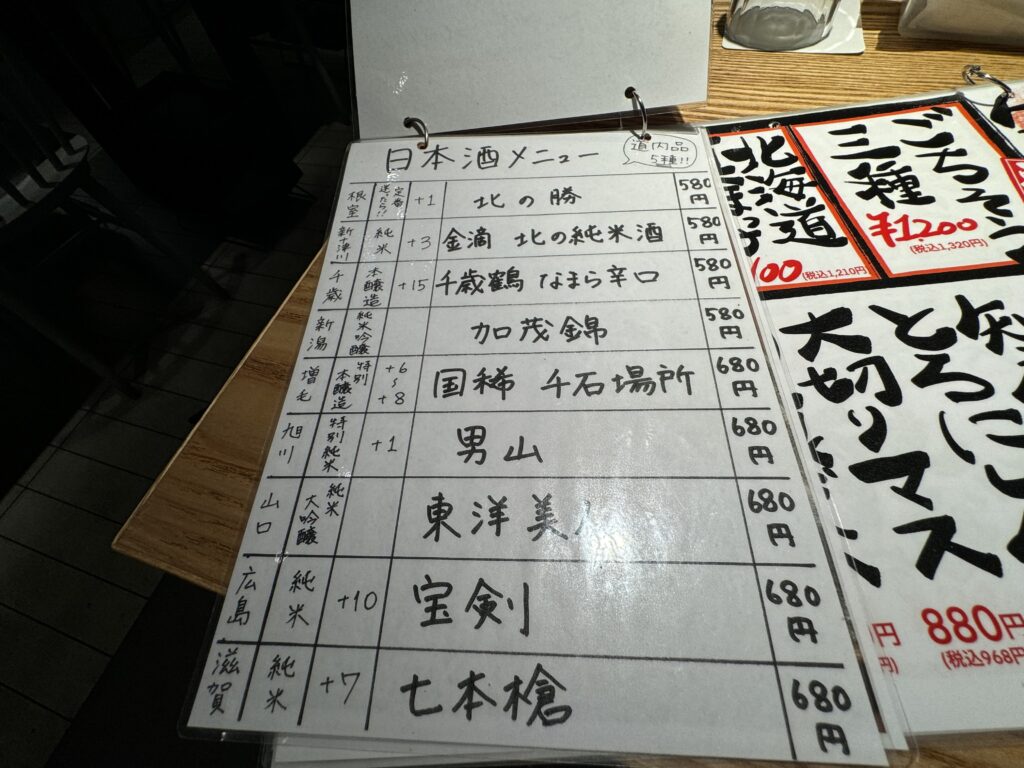 日本酒メニュー
道内品
5種!!
根室 定番 迷ったら!! +1 北の勝 580円
新十津川 純米 +3 金滴 北の純米酒 580円
千歳 本醸造 +15 千歳鶴 なまら辛口 580円
新潟 純米吟醸 加茂錦 580円
増毛 特別本醸造 +6〜+8 国稀 千石場所 680円
旭川 特別純米 +1 男山 680円
山口 純米大吟醸 東洋美人 680円
広島 純米 +10 宝剣 680円
滋賀 純米 +7 七本槍 680円
三種
¥1,200
(税込1,320円)
北海道
(税込1,210円
とろにしん
大切りマス
円
円)
880円
(税込968円